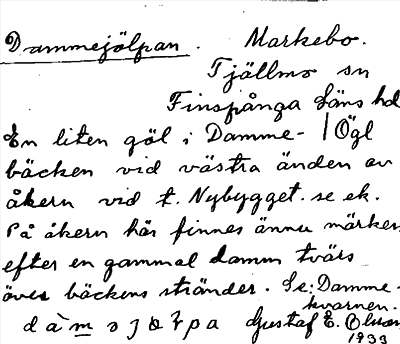 Dammejölpan. Markebo.
Tjällmo sn
Finspånga läns hd
En liten göl i Damme- / Ögl
bäcken vid västra änden av
åkern vid t. Nybygget. se ek.
På åkern här finnes ännu märken
efter en gammal damm tvärs
över bäckens stränder. Se: Damme-
kvarnen.
Gustaf E. Olsson
1933